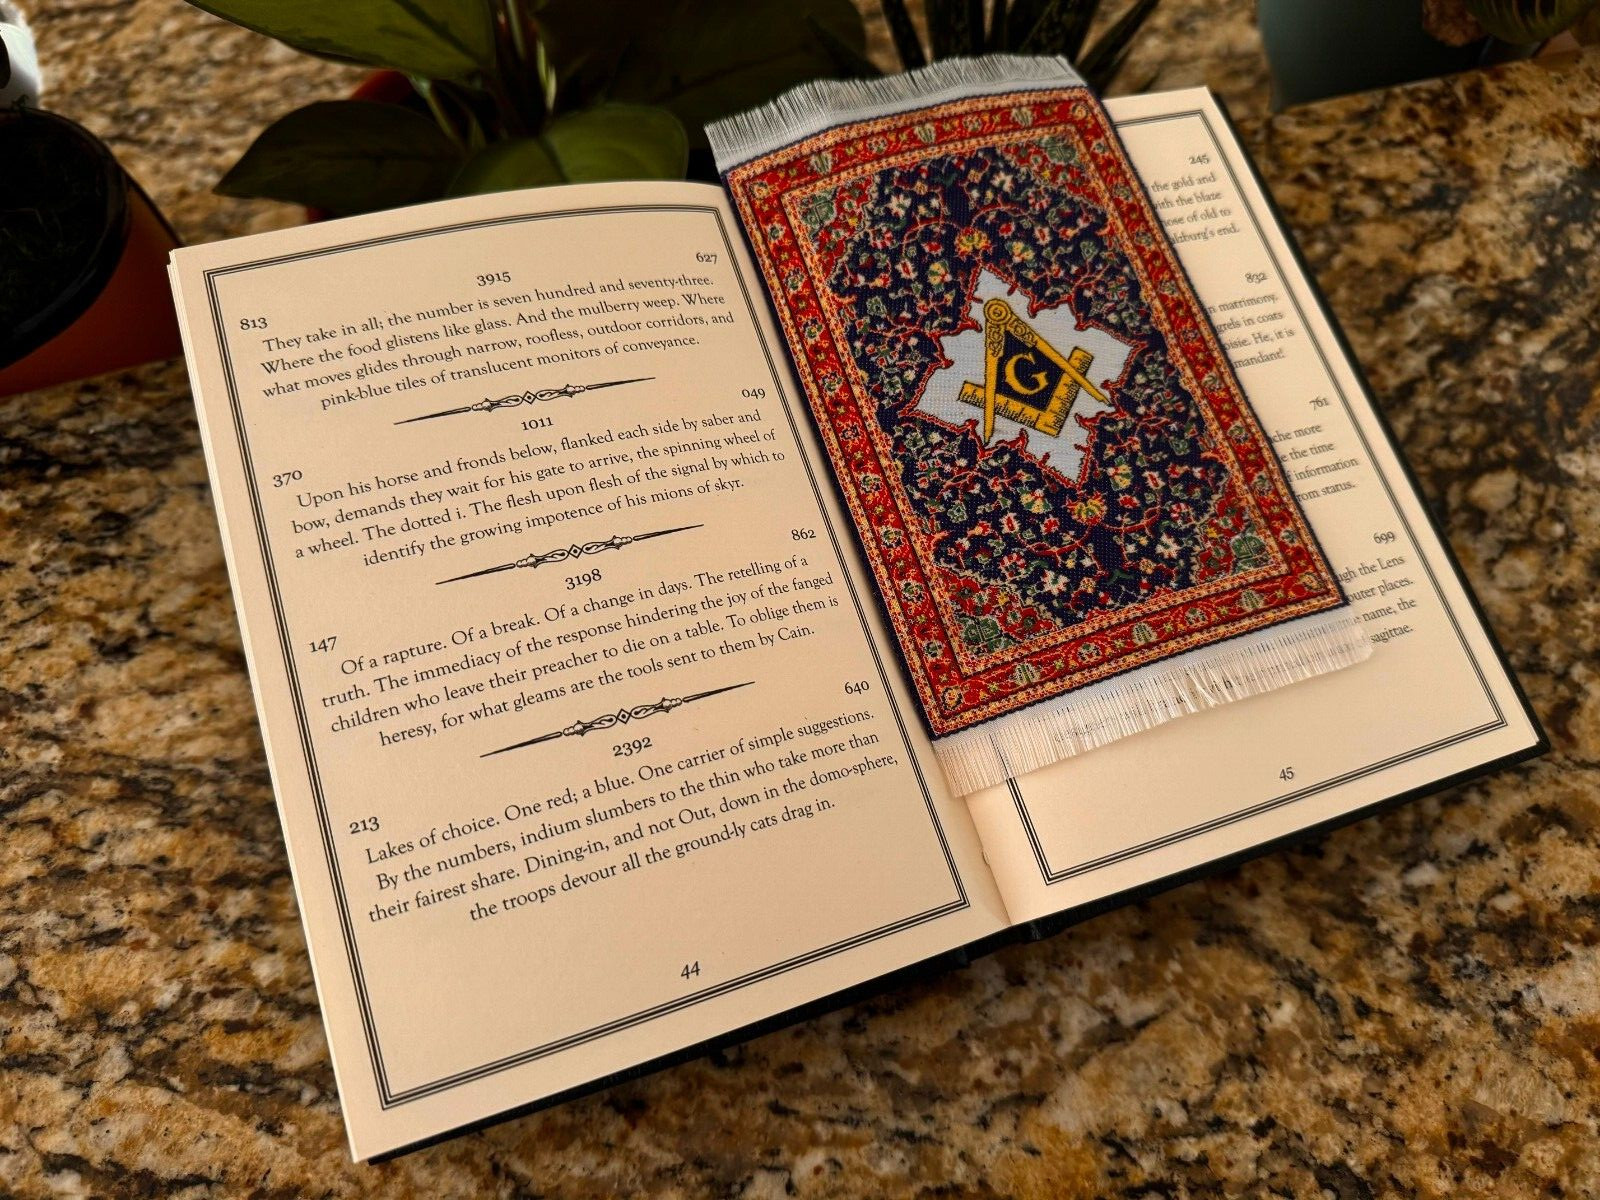 3915
813 627
They take in all; the number is seven hundred and seventy-three.
Where the food glistens like glass. And the mulberry weep. Where
what moves glides through narrow, roofless, outdoor corridors, and
pink-blue tiles of translucent monitors of conveyance.
1011
370 049
Upon his horse and fronds below, flanked each side by saber and
bow, demands they wait for his gate to arrive, the spinning wheel of
a wheel. The dotted i. The flesh upon flesh of the signal by which to
identify the growing impotence of his mions of skyr.
3198
147 862
Of a rapture. Of a break. Of a change in days. The retelling of a
truth. The immediacy of the response hindering the joy of the fanged
children who leave their preacher to die on a table. To oblige them is
heresy, for what gleams are the tools sent to them by Cain.
2392
213 640
Lakes of choice. One red; a blue. One carrier of simple suggestions.
By the numbers, indium slumbers to the thin who take more than
their fairest share. Dining-in, and not Out, down in the domo-sphere,
the troops devour all the ground-ly cats drag in.
44
G
245
the gold and
with the blaze
those of old to
end.
832
in matrimony.
in coats
He, it is
761
more
the time
information
from status.
699
the Lens
outer places.
name, the
sagittae.
45